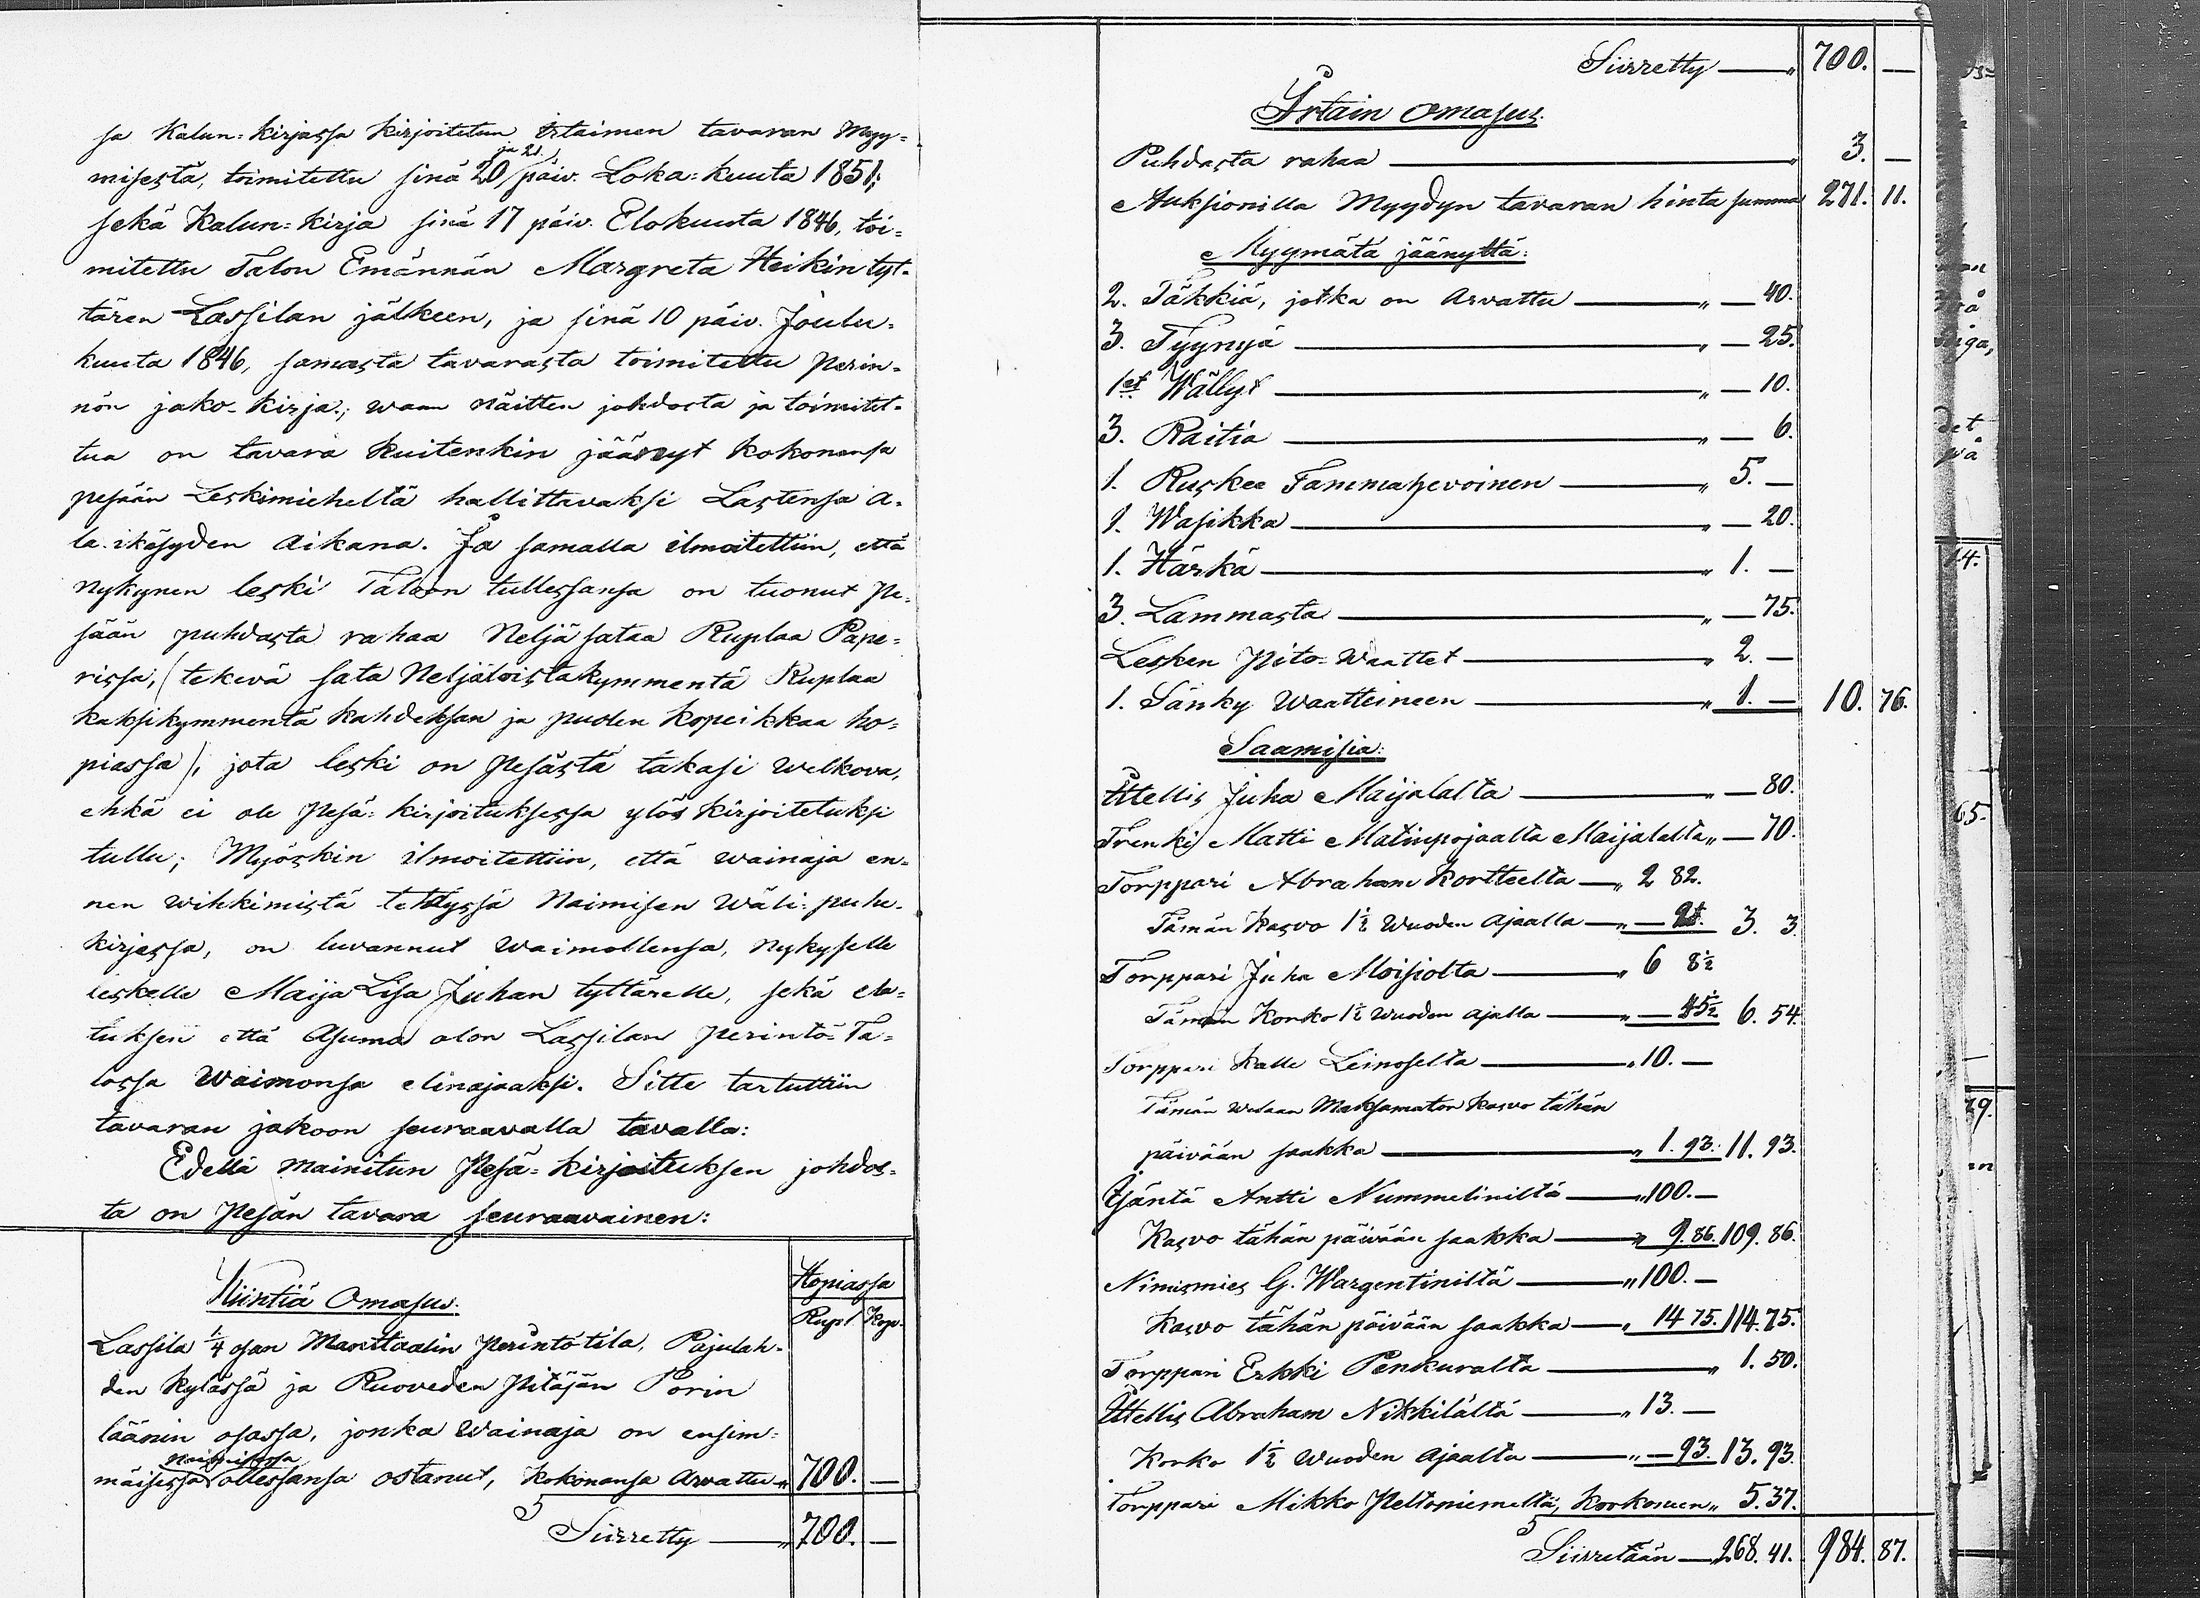 sa Kalun=kirjassa kirjoitetun irtaimen tavaran Myy=
misestä, toimitettu sinä 20 ja 21. päiv. Loka=kuuta 1851;
sekä Kalun=kirja sinä 17 päiv. Elokuuta 1846, toi=
mitettu Talon Emännän Margreta Heikin tyt=
tären Lassilan jälkeen, ja sinä 10 päiv. Joulu=
kuuta 1846, samasta tavarasta toimitettu perin=
nön jako-kirja; waan näitten johdosta ja toimitet=
tua on tavara kuitenkin jäänyt kokonansa
pesään Leskimieheltä hallittavaksi Lastensa a=
la-ikäsyden aikana. Ja samalla ilmoitettiin, että
nykynen leski Taloon tullessansa on tuonut Pe=
sään puhdasta rahaa Neljä sataa Ruplaa Pape=
rissa, (tekevä sata Neljätoistakymmentä Ruplaa
kaksikymmentä kahdeksan ja puolen kopeikkaa ho=
piassa), jota leski on Pesästä takasi welkova,
ehkä ei ole Pesä=kirjoituksessa ylös kirjoitetuksi
tullu; Myöskin ilmoitettiin, että wainaja en=
nen wihkimistä tehtyssä Naimisen wäli=puhe=
kirjassa, on luvannut waimollensa, nykyselle
leskelle Maija Lisa Juhan tyttärelle, sekä ela=
tuksen että Asuma olon Lassilan perintö-Ta=
lossa waimonsa elinajaaksi. Sitte tartuttiin
tavaran jakoon seuraavalla tavalla:
Edellä mainitun Pesä=kirjoituksen johdos=
ta on Pesän tavara seuraavainen:
Kiintiä Omasus.
Hopiassa
Rupl. Kop.
Lassila 1/4 osan Manttaalin Perintö tila, Pajulah=
den kylässä ja Ruoveden Pitäjän Porin
läänin osassa, jonka wainaja on ensim=
mäisessä naimisessa ollessansa ostanut, kokonansa arvattu " 700. —
Siirretty — " 700. —
Siirretty — " 700. —
Irtain omasus.
Puhdasta rahaa — " 3. —
Auksionilla Myydyn tavaran hinta summa 271. 11.
Myymätä jäänyttä:
2. Täkkiä, jotka on arvattu — " — 40.
3. Tyynyä — " — 25.
1et Wällyt — " — 10.
3. Raitia — " — 6.
1. Ruskee Tammahevoinen — " 5. —
1. Wasikka — " — 20.
1. Härkä — " 1. —
3. Lammasta — " — 75.
Lesken Pito-waattet — " 2. —
1. Sänky waatteineen — " 1. — 10. 76.
Saamisia:
Itellis Juha Maijalalta — " — 80.
Trenki Matti Matinpojaalta Maijalalta " — 70.
Torppari Abraham Kortteelta — " 2 82.
Tämän kasvo 1½ wuoden ajaalla — " — 21. 3. 3.
Torppari Juha Moisiolta — " 6 8½
Tämän Korko 1½ wuoden ajalla — " — 45½ 6. 54.
Torppari Kalle Leinoselta — " 10. —
Tämän welaan Maksamaton kasvo tähän
päivään saakka — " 1. 93. 11. 93.
Isäntä Antti Nummeliniltä — " 100. —
Kasvo tähän päivään saakka — " 9. 86. 109. 86.
Nimismies G. Wargentiniltä — " 100. —
Kasvo tähän päivään saakka — " 14 75. 114. 75.
Torppari Erkki Penkuralta — " 1. 50.
Itellis Abraham Nikkilältä — " 13. —
Korko 1½ wuoden ajaalta — " — 93. 13. 93.
Torppari Mikko Peltoniemeltä, korkoneen " 5. 37.
Siirretään — 268. 41. 984. 87.